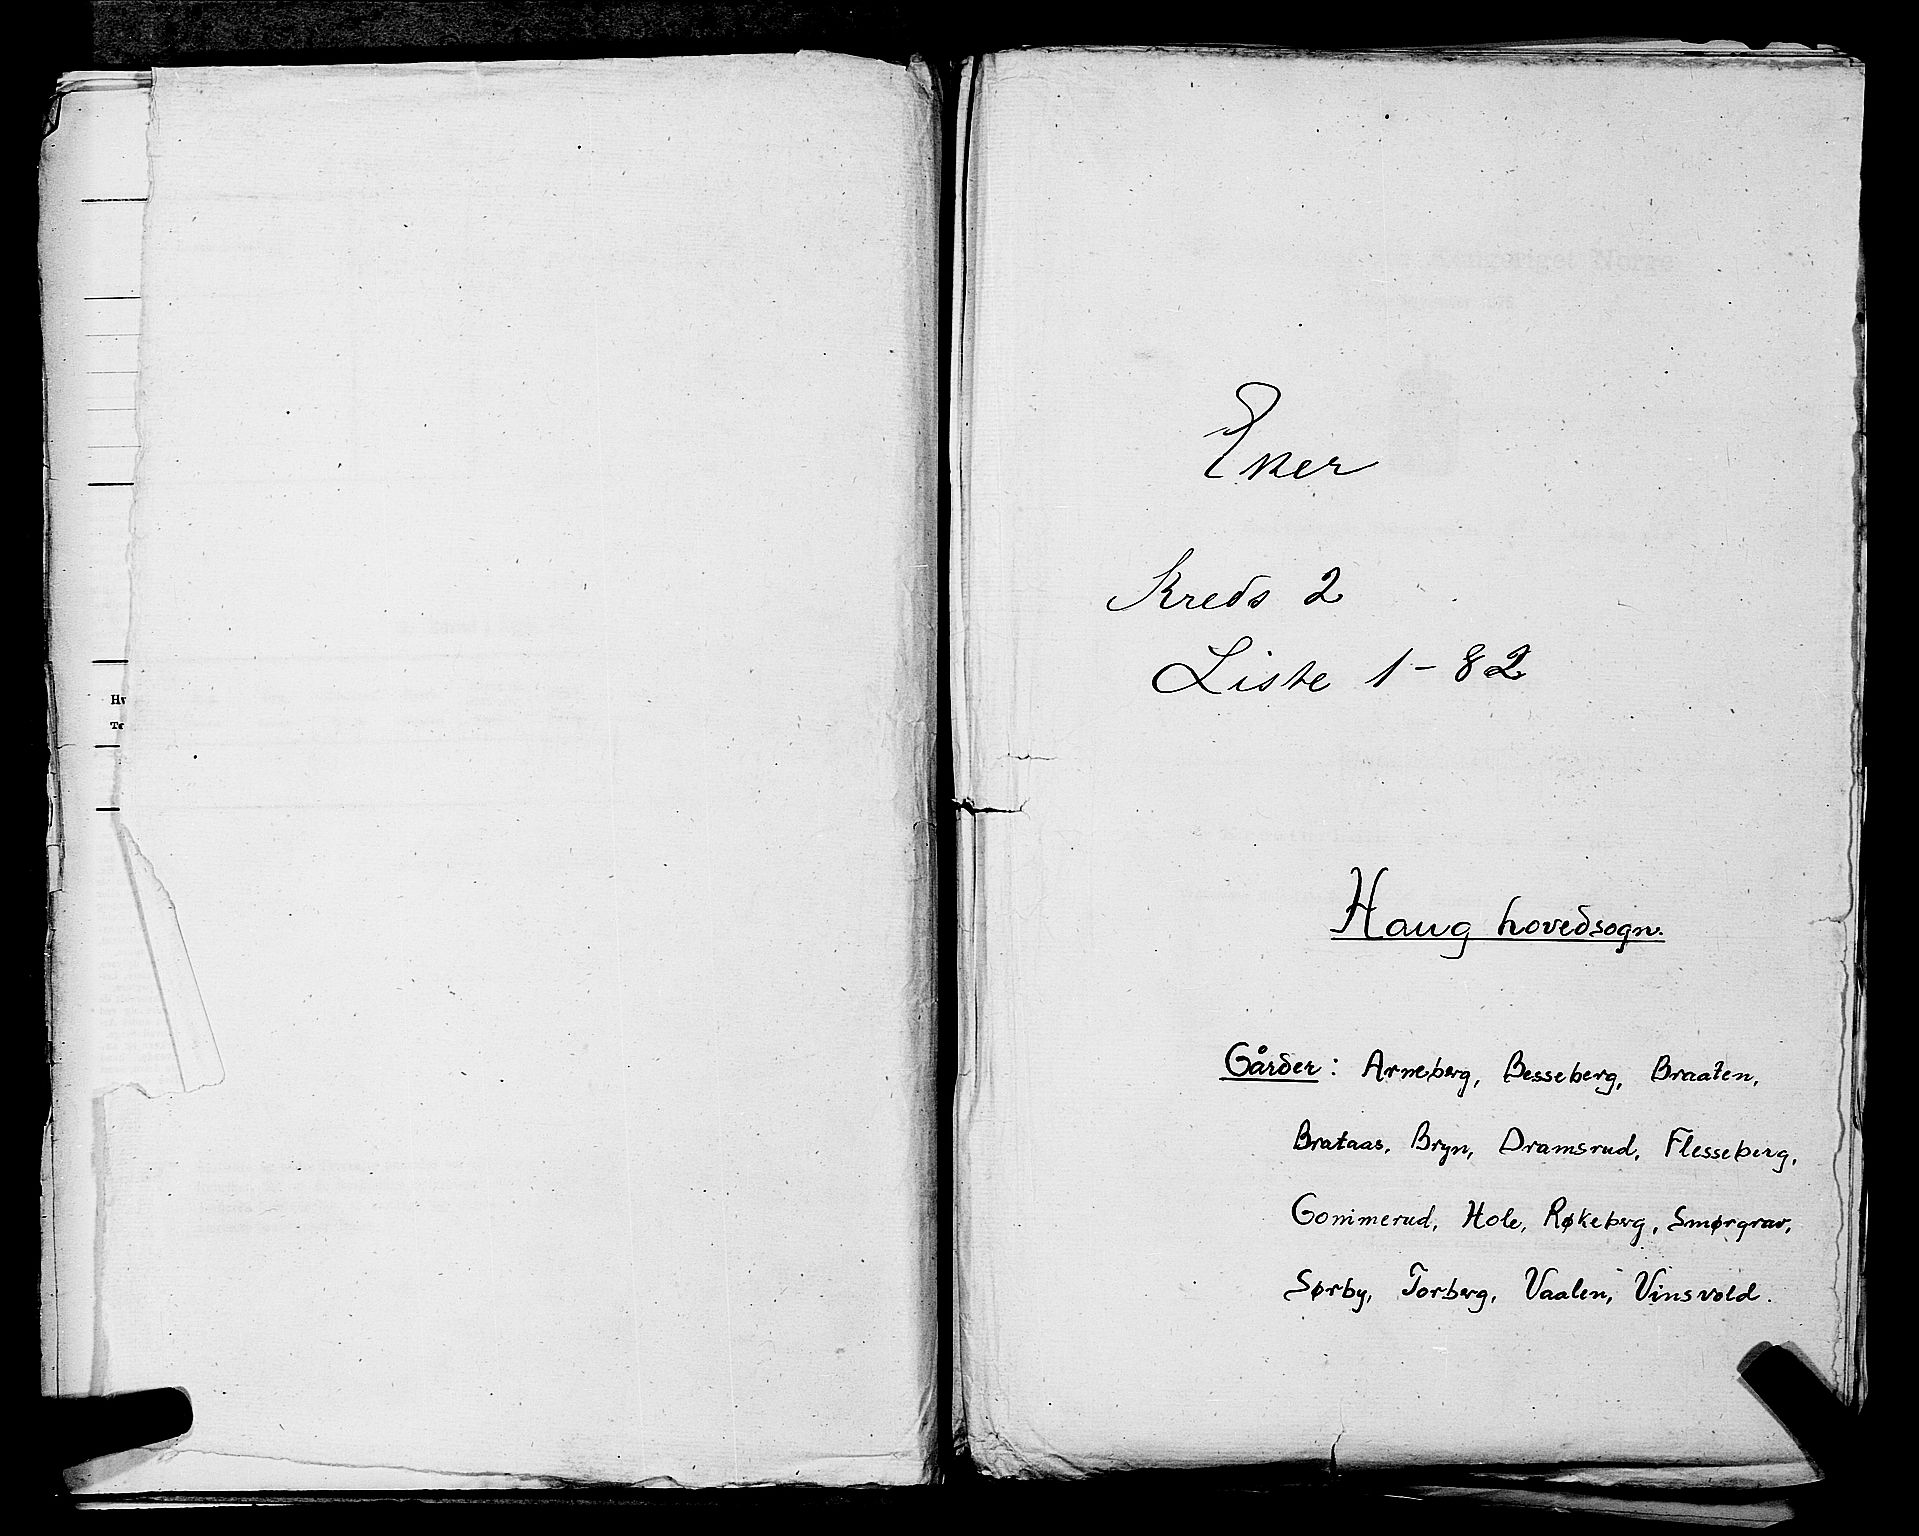 Eker
Kreds 2
Liste 1-82
Haug hovedsogn.
Gårder: Arneberg, Besseberg, Braaten,
Brataas, Bryn, Dramsrud, Flesseberg,
Gommerud, Hole, Røkeberg, Smørgrav,
Sørby, Torberg, Vaalen, Vinsvold.